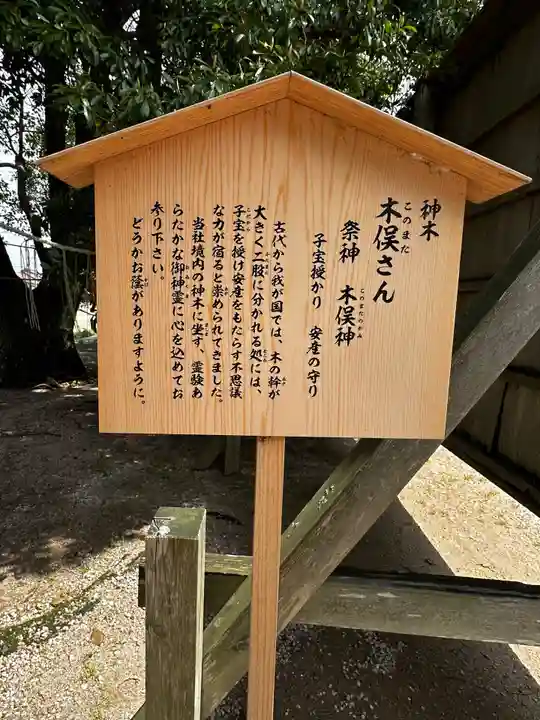 神木
木俣さん
このまた
祭神 木俣神
このまたのかみ
子宝授かり 安産の守り
古代から我が国では、木の幹が
大きく二股に分かれる処には、
子宝を授け安産をもたらす不思議
な力が宿ると崇められてきました。
当社境内の神木に坐す、霊験あ
らたかな御神霊に心を込めてお
参り下さい。
どうかお蔭がありますように。